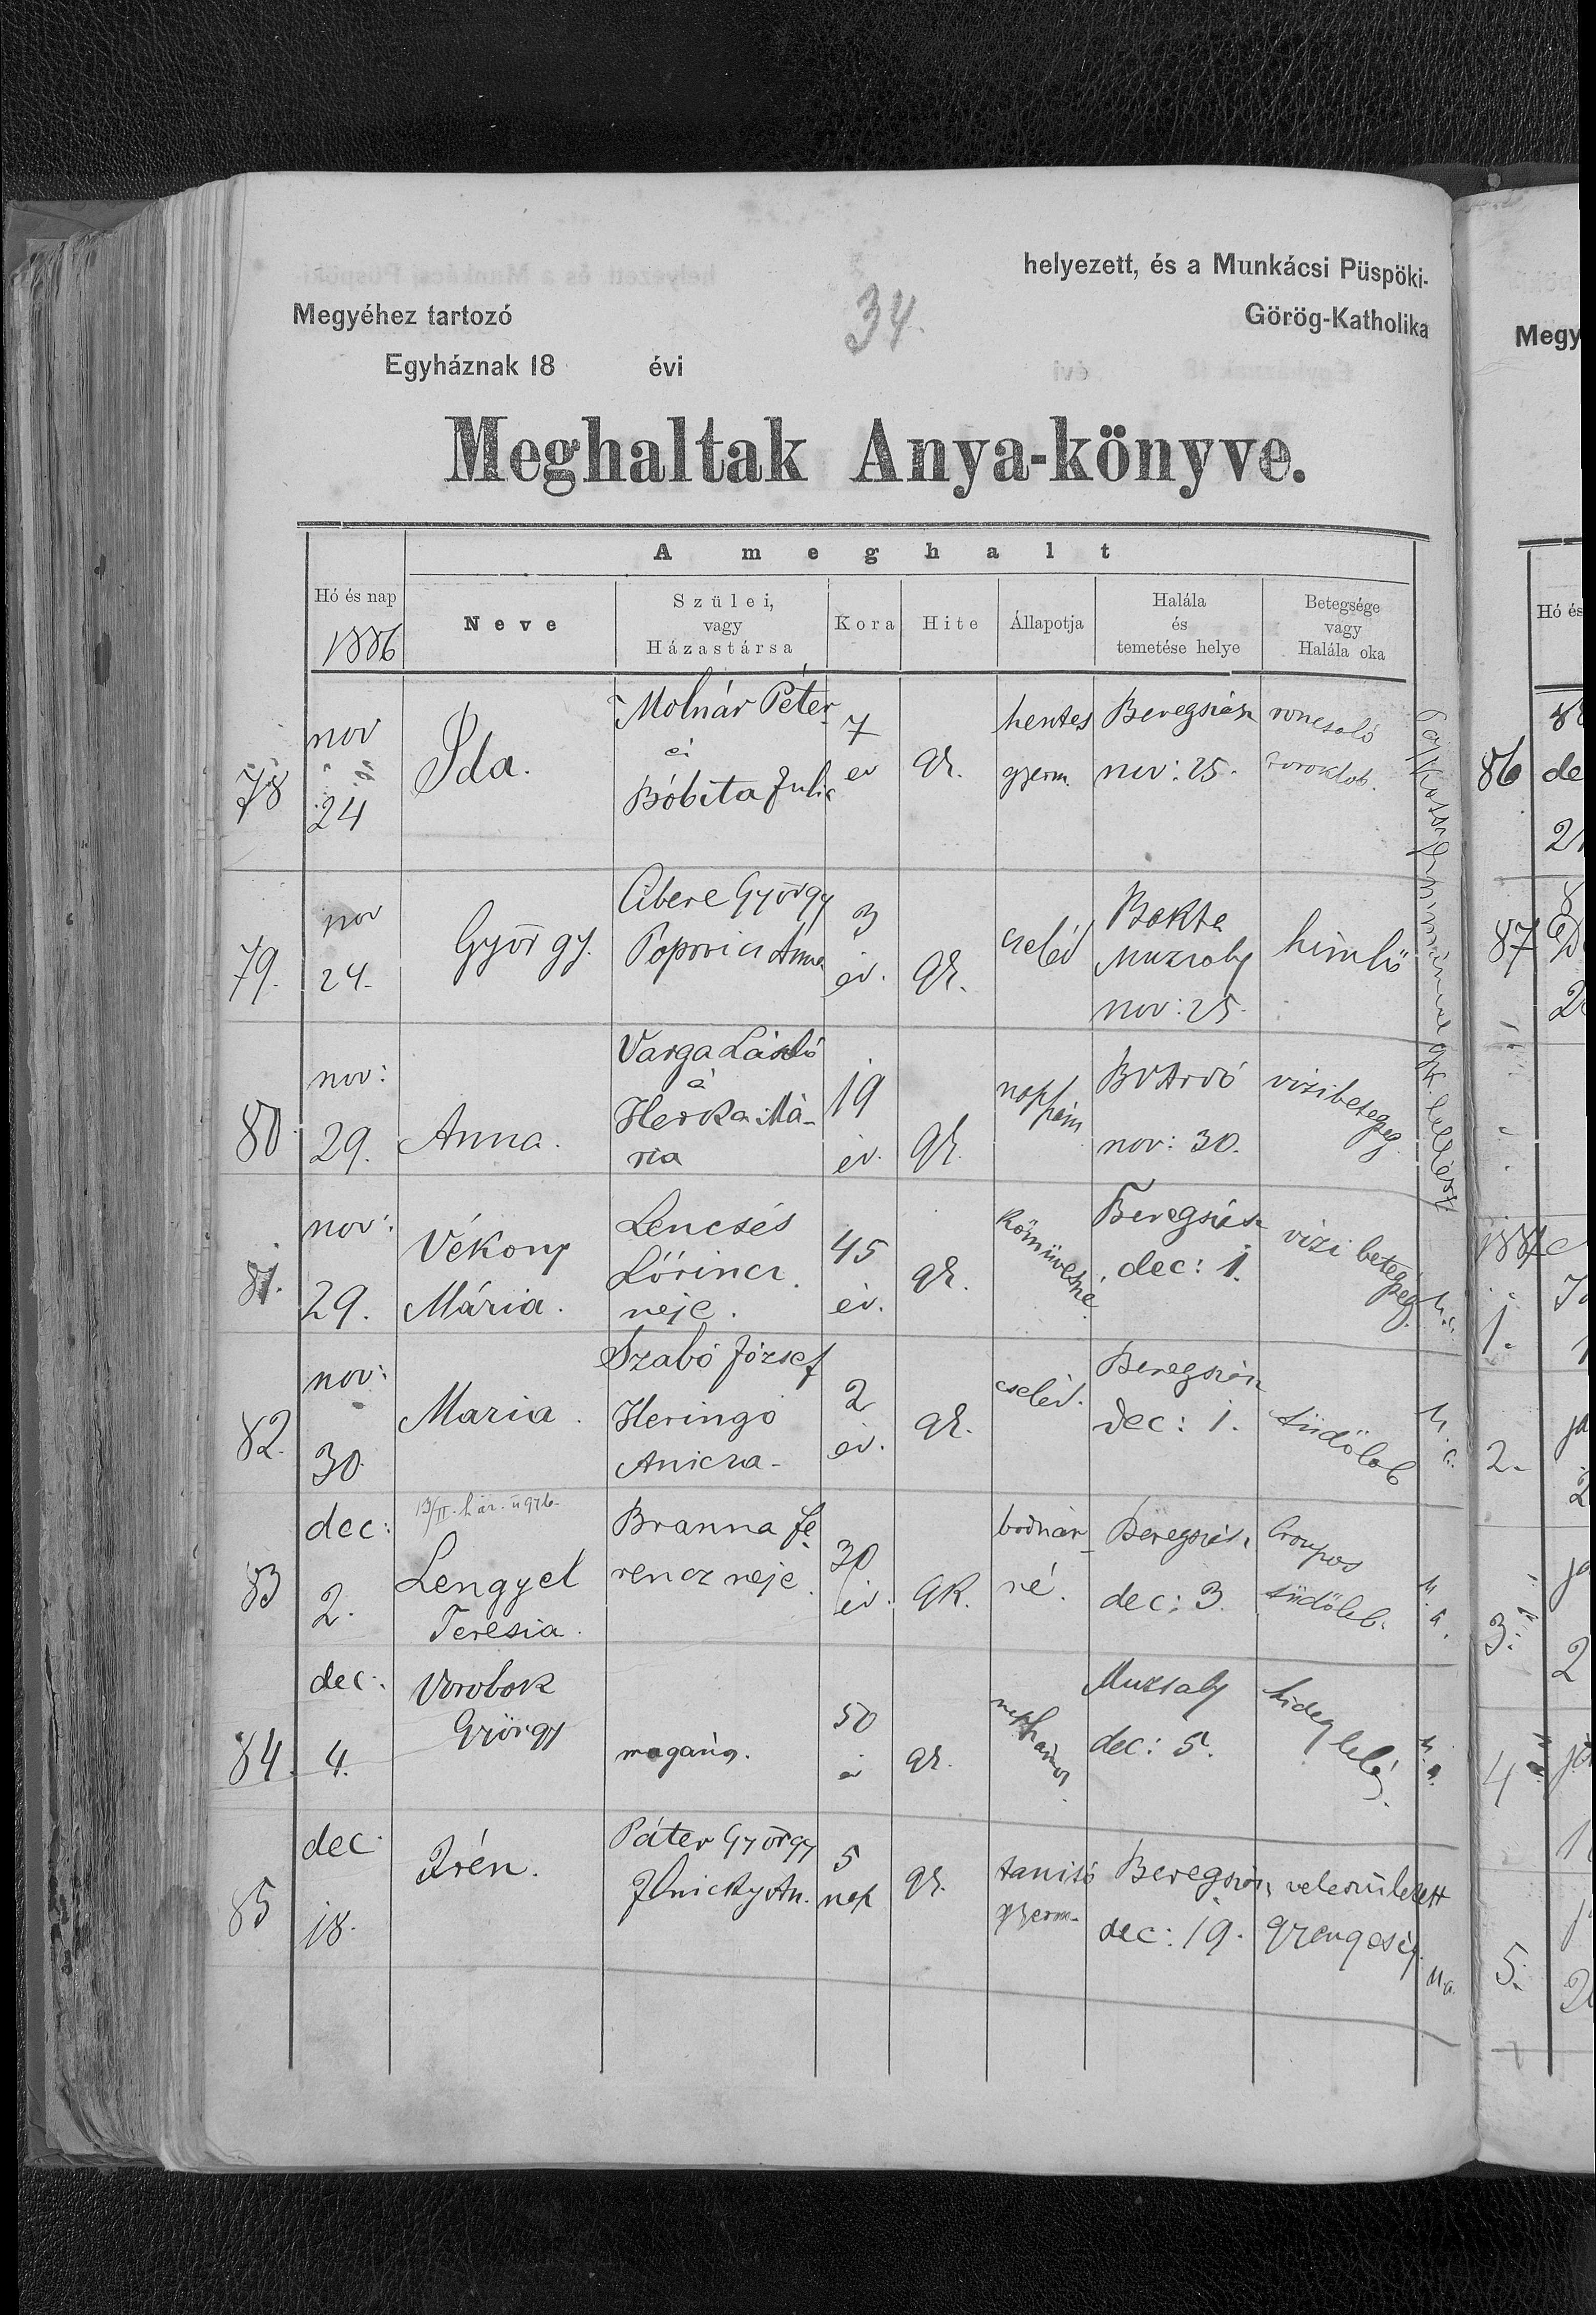 helyezett, és a Munkácsi Püspöki-
Megyéhez tartozó
34.
Görög-Katholika
Egyháznak 18 évi
Meghaltak Anya-könyve.
A meghalt
Hó és nap
1886
Neve
Szülei,
vagy
Házastársa
Kora
Hite
Állapotja
Halála
és
temetése helye
Betegsége
vagy
Halála oka
78
nov
24
Ida.
Molnár Péter
és
Bóbita Julia
7
év
gk.
hentes
gyerm.
Beregszász
nov: 25.
roncsoló
toroklob.
79.
nov
24.
György.
Cibere György
Popovics Anna
3
év.
gk.
cseléd
Bakta
Muzsaly
nov: 25.
himlő
80.
nov:
29.
Anna.
Varga László
és
Herka Má-
ria
19
év.
gk.
napszám
BVArdó
nov: 30.
vizibetegség
81.
nov:
29.
Vékony
Mária.
Lencsés
Lőrincz
neje.
45
év.
gk.
Kőmüvesné
Beregszász
dec: 1.
vizi betegség
u. a.
82.
nov:
30
Maria.
Szabó József
Heringo
Anicza
2
év.
gk.
cseléd.
Beregszász
dec: 1.
tüdőlob
u. a.
83
dec:
2.
Lengyel
Teresia.
Branna Fe
rencz neje.
30
év.
gk.
bodnár-
né.
Beregszász
dec: 3.
Croupos
tüdőlob.
u. a.
84.
dec:
4.
Vorobok
György
magány.
50
é
gk.
napszámos
Muzsaly
dec: 5.
hideglelés.
u. a.
85
dec
18.
Irén.
Páter György
Ilniczky An.
5
nap
gk.
tanitó
gyerm.
Beregszász
dec: 19.
veleszületett
gyengeség.
u. a.
Megy
Hó és
86
de
21
87
1887
1.
2.
3.
4
5.